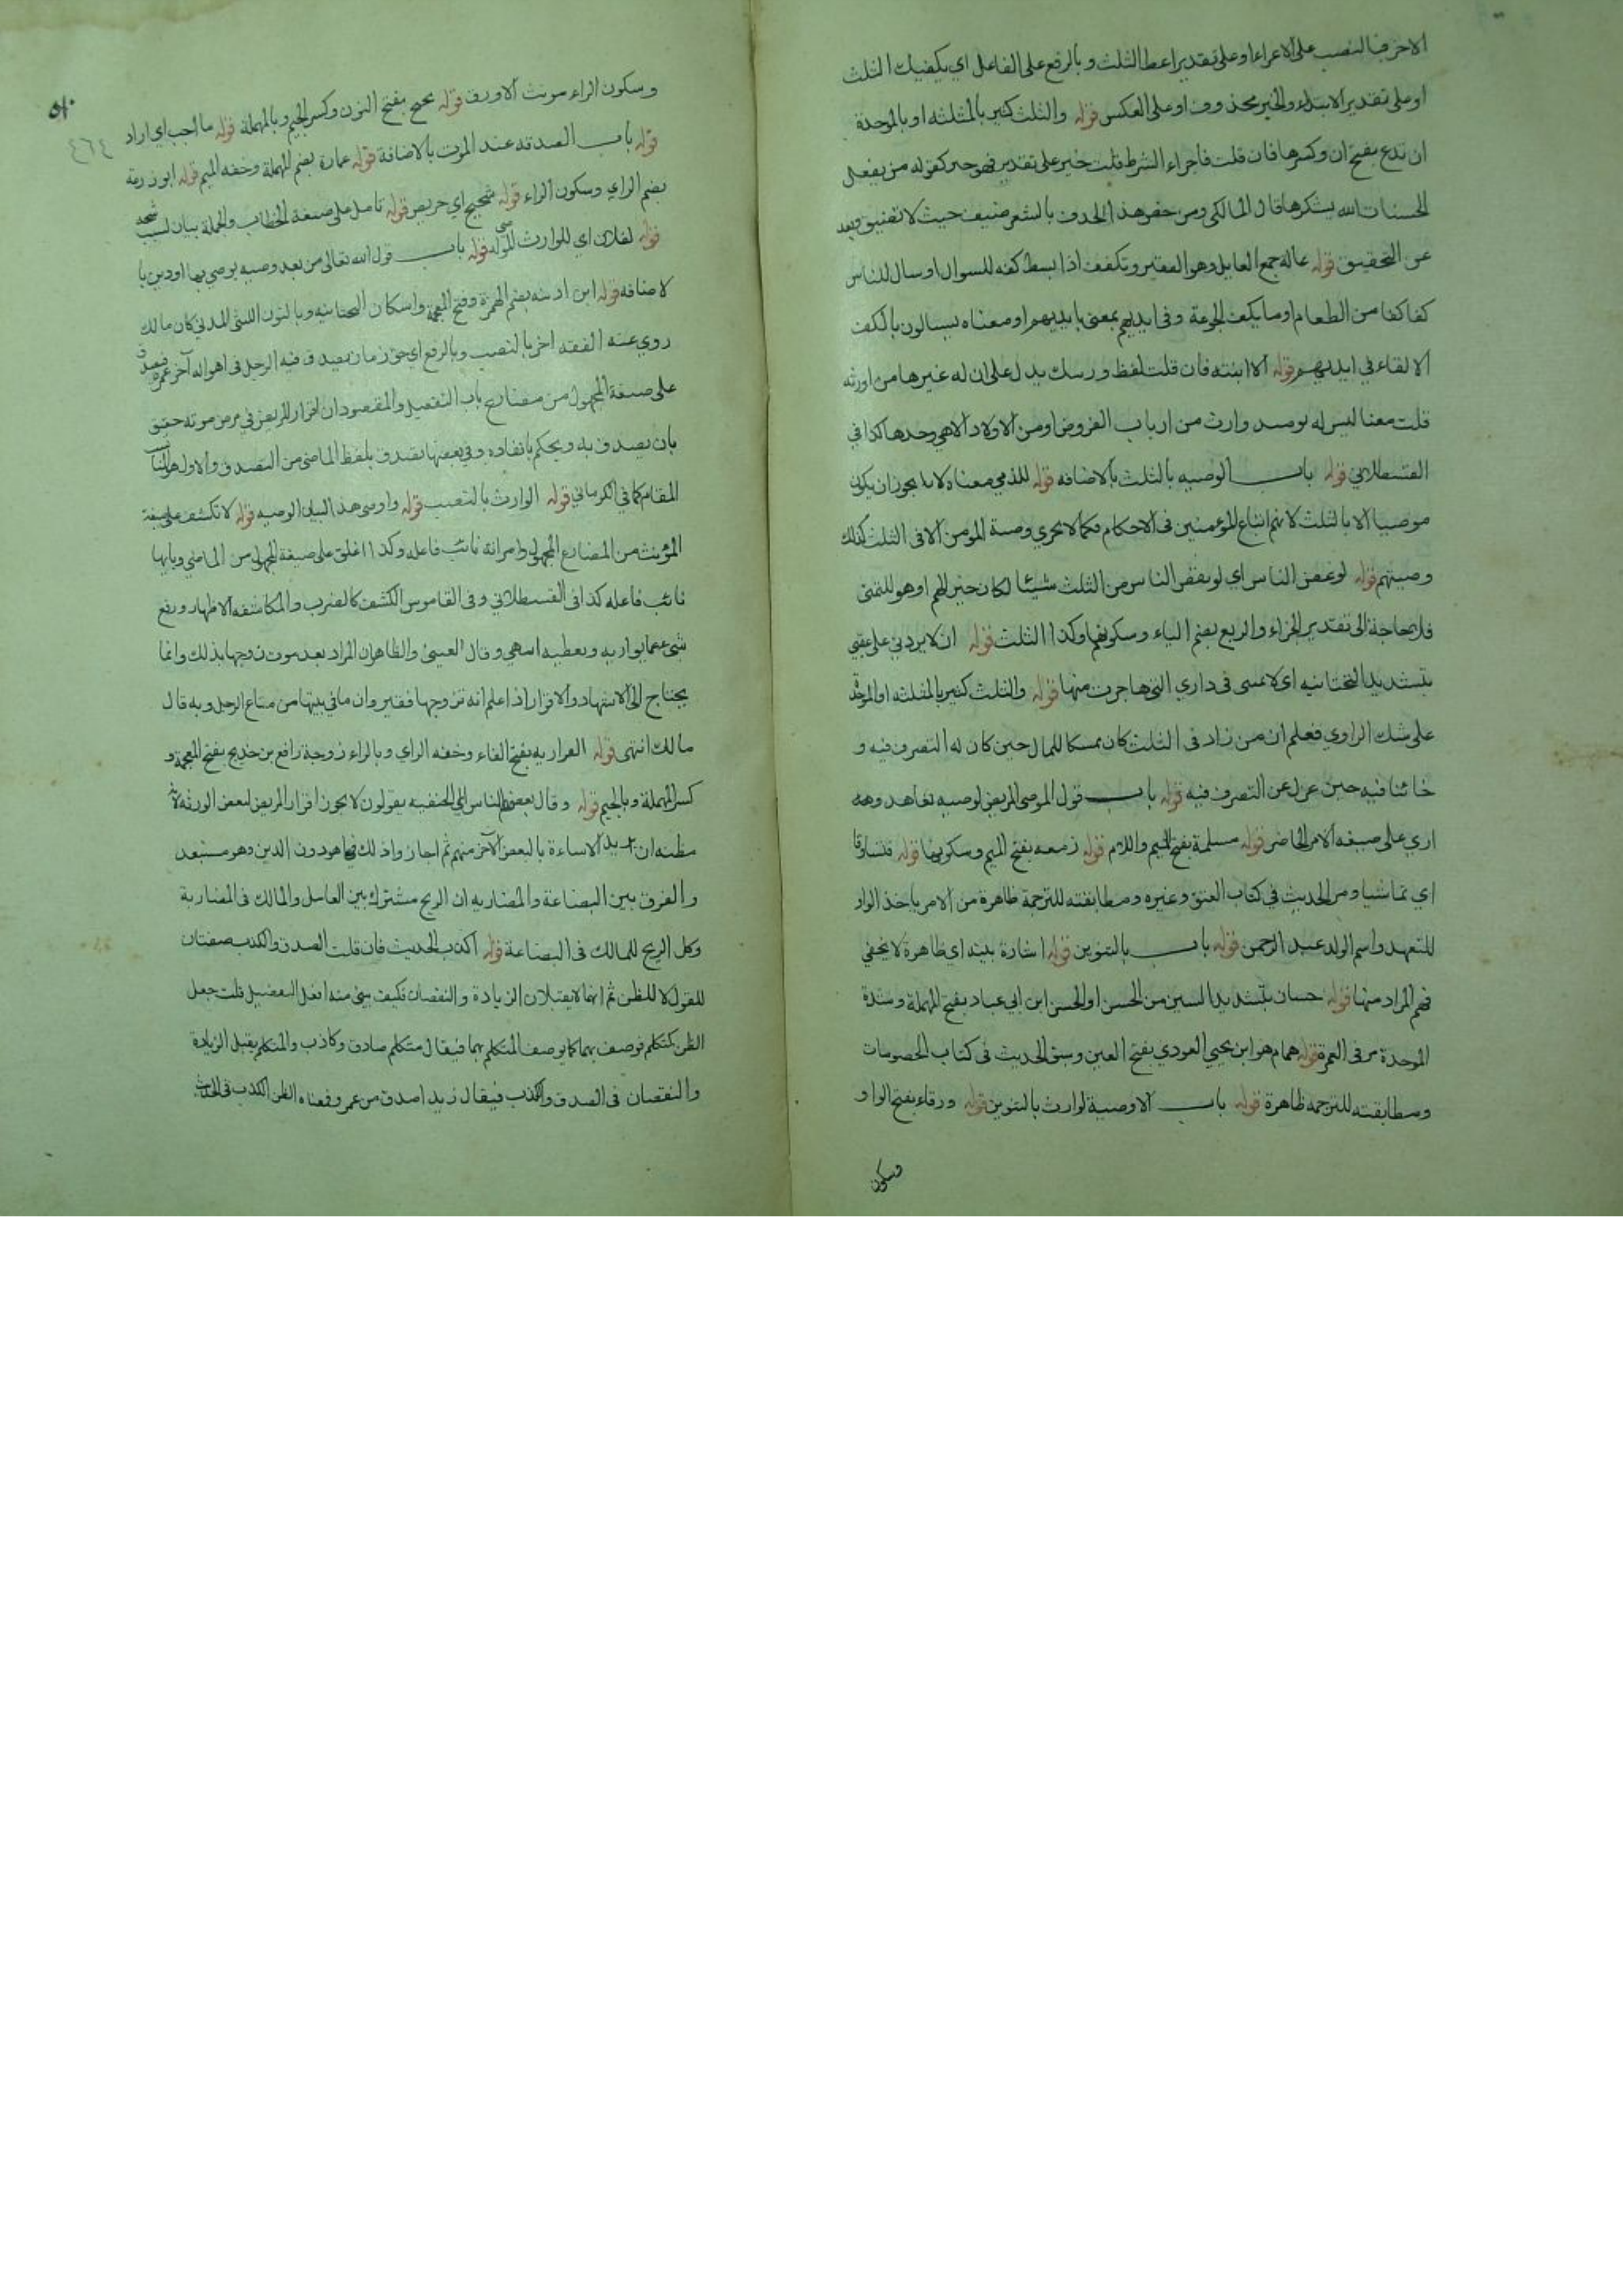 الاخر فبالنصب على الاعراء او على تقدير اعط الثلث وبالرفع على الفاعل اي يكفيك الثلث
او على تقدير الابتداء والخبر محذوف او على العكس قوله والثلث كثير بالمثلثه او بالموحدة
ان تدع بفتح ان وكسرها فان قلت فاجراء الشرط قلت خبر على تقدير فهو خير كقوله من يفعل
الحسنات الله يشكرها قال المالكي ومن خص هذا الحذف بالشعر ضيق حيث لا تضييق وبعد
عن التحقيق قوله عالة جمع العايل وهو الفقير وتكفف اذا بسط كفه للسوال او سال للناس
كفا كفا من الطعام او ما يكف الجوعة وفي ايديهم بمعنى بايديهم او معناه يسالون بالكف
الالقاء في ايديهم قوله الا ابنته فان قلت لفظ ورسك يدل على ان له غيرها من اورثه
قلت معنا ليس له يومىد وارث من ارباب الفروض او من الاولاد الا هي وحدها كذا في
القسطلاني قوله باب الوصيه بالثلث بالاضافه قوله للذمي معناه لا يجوز ان يكون
موصيا الا بالثلث لانهم اتباع للمومنين في الاحكام فكما لا يجري وصية المومن الا في الثلث كذلك
وصيتهم قوله لو غض الناس اي لو نقص الناس من الثلث شيئا لكان خير لهم او هو للتمنى
فلا حاجة الى تقدير الجزاء والربع بضم الباء وسكونها وكذا الثلث قوله ان لا يردني على عقبي
بتشديد التحتانيه اي لا تمتني في داري التي هاجرت منها قوله والثلث كثير بالمثلثه او الموحدة
على شك الراوي فعلم ان من زاد في الثلث كان ممسكا للمال حين كان له التصرف فيه و
خائنا فيه حين عزل عن التصرف فيه قوله باب قول الموصي المريض لوصيه تعاهد وهه
اري على صيغه الامر الحاضر قوله مسلمة بفتح الميم واللام قوله زمعه بفتح الميم وسكونها قوله فتساوقا
اي تماشيا ومر الحديث في كتاب العتق وغيره ومطابقته للترجمة ظاهرة من الامر باخذ الوار
للتعهد واسم الولد عبد الرحمن قوله باب بالتنوين قوله اشارة بينه اي ظاهرة لا يخفي
فهم المراد منها قوله حسان بتشديد السين من الحسن او الحسن ابن ابي عباد بفتح المهملة وشدة
الموحدة مر في العمرة قوله همام هو ابن يحيي العودي بفتح العين وسبق الحديث في كتاب الخصومات
ومطابقته للترجمه ظاهرة قوله باب لا وصية لوارث بالتنوين قوله ورقاء بفتح الواو
وسكون
وسكون الراء مونث الاورق قوله نجيح بفتح النون وكسر الجيم وبالمهملة قوله ما احب اي اراد
قوله باب الصدقه عند الموت بالاضافة قوله عمارة بضم المهملة وخفه الميم قوله ابو زرعة
بضم الزاي وسكون الراء قوله شحيح اي حريص قوله تامل على صيغة الخطاب والجملة بيان لسبب شحه
قوله لفلان اي للوارث قوله باب قول الله تعالى من بعد وصيه يوصي بها او دين با
لاضافه قوله ابن اذينه بضم الهمزة وفتح المعجمة واسكان التحتانيه وبالنون الليثي المدني كان مالك
روي عنه الفقه اخر بالنصب وبالرفع اي حق زمان يصدق فيه الرجل في احواله آخر عمره فيصدق
على صيغة المجهول من مضارع باب التفعيل والمقصود ان اقرار المريض في مرض موته حقيق
بان يصدق به ويحكم بانفاده وفي بعضها تصدق بلفظ الماضي من التصدق والاول هو المناسب
المقام كما في الكرماني قوله الوارث بالنصب قوله واوصى هذا لبيان الوصيه قوله لا تكشف على صيغة
المؤنث من المضارع المجهول وامراته نائب فاعله وكذا اغلق على صيغة المجهول من الماضي وبابها
نائب فاعله كذا في القسطلاني وفي القاموس الكشف كالضرب والمكاشفه الاظهار ورفع
شئ عما يواريه ويغطيه اسهي وقال العيني والظاهر ان المراد بعد موت زوجها بذلك وانما
يحتاج الى الاشهاد والاقرار اذا علم انه تزوجها فقير وان ما في بيتها من متاع الرجل وبه قال
مالك انتهى قوله الفراريه بفتح الفاء وخفه الزاي وبالراء زوجة رافع بن خديج بفتح المعجمة و
كسر المهملة وبالجيم قوله وقال بعض الناس اي الحنفيه يقولون لا يجوز اقرار المريض لبعض الورثه لانه
مظنه ان يريد الاساءة بالبعض الآخر منهم ثم اجاز واذلك هو دون الدين وهو مستبعد
والفرق بين البضاعة والمضاربه ان الربح مشترك بين العامل والمالك في المضاربة
وكل الربح للمالك في البضاعة قوله اكذب الحديث فان قلت الصدق والكذب صفتان
للقول لا للظن ثم انهما لا يقبلان الزيادة والنقصان فكيف يبنى منه افعل التفضيل قلت جعل
الظن كمتكلم فوصف بهما كما يوصف المتكلم بهما فيقال متكلم صادق وكاذب والمتكلم يقبل الزيادة
والنقصان في الصدق والكذب فيقال زيد اصدق من عمرو فمعناه الظن اكذب في الحديث